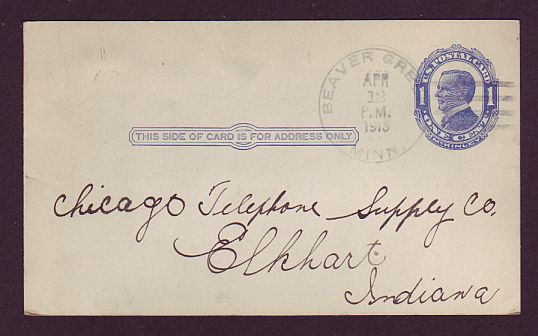 BEAVER CRE
APR
12
P.M.
1913
MINN.
U.S. POSTAL CARD
1 1
ONE CENT
McKINLEY
THIS SIDE OF CARD IS FOR ADDRESS ONLY
Chicago Telephone Supply Co.
Elkhart
Indiana